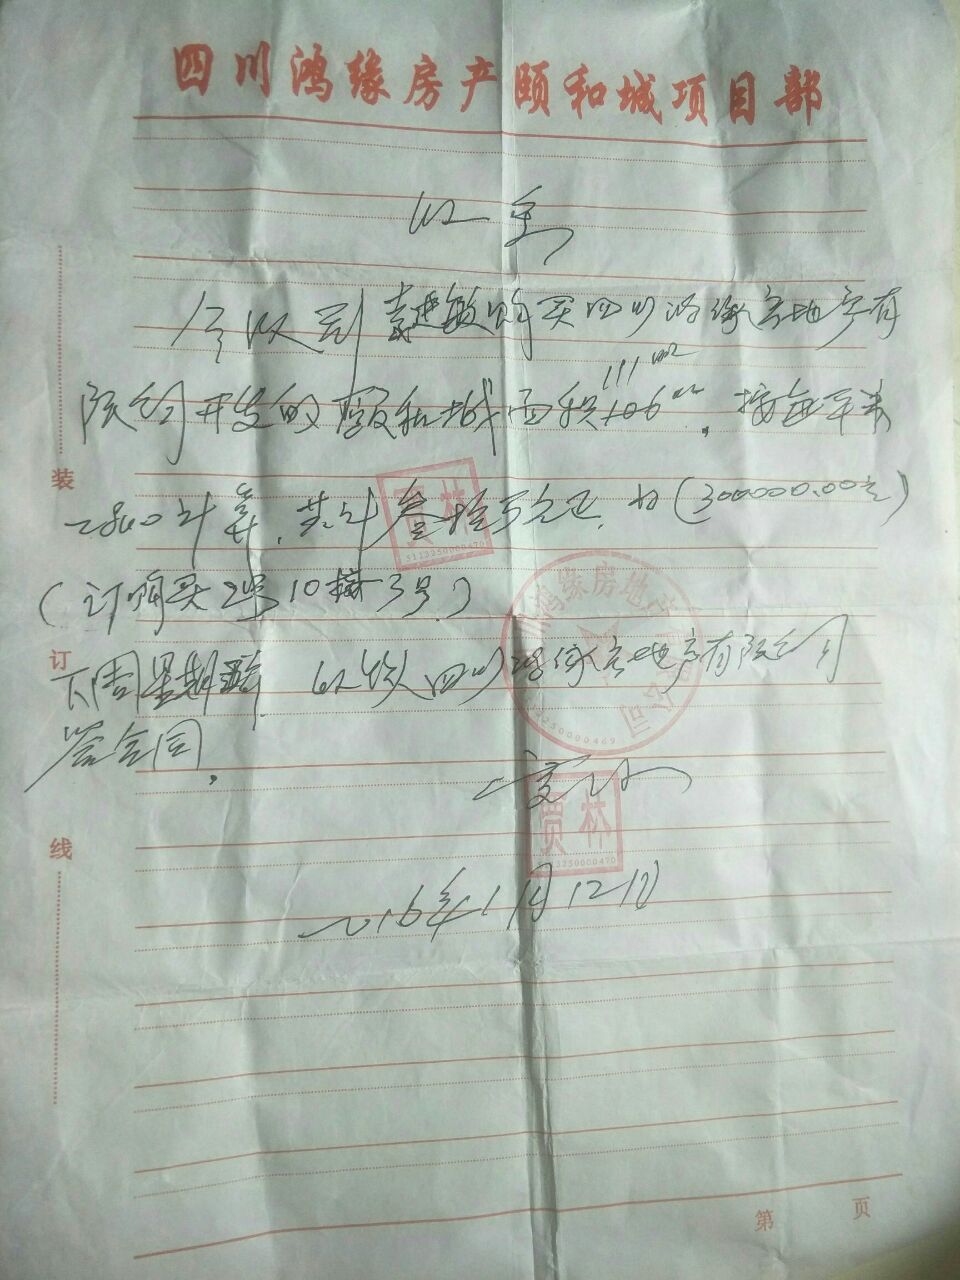 四川鸿缘房产颐和城项目部
收条
今收到袁建敏购买四川鸿缘房地产有
限公司开发的颐和城面积106m². 按每平米
111m²
2840计算,共计叁拾万元正,为(300000.00元)
(订购买2号10楼3号)
下周星期 收条四川鸿缘房地产有限公司
签合同.
2016年1月12日
贾林
5113250000470
鸿缘房地产 公司
3250000469
贾林
3250000470
装
订
线
第 页